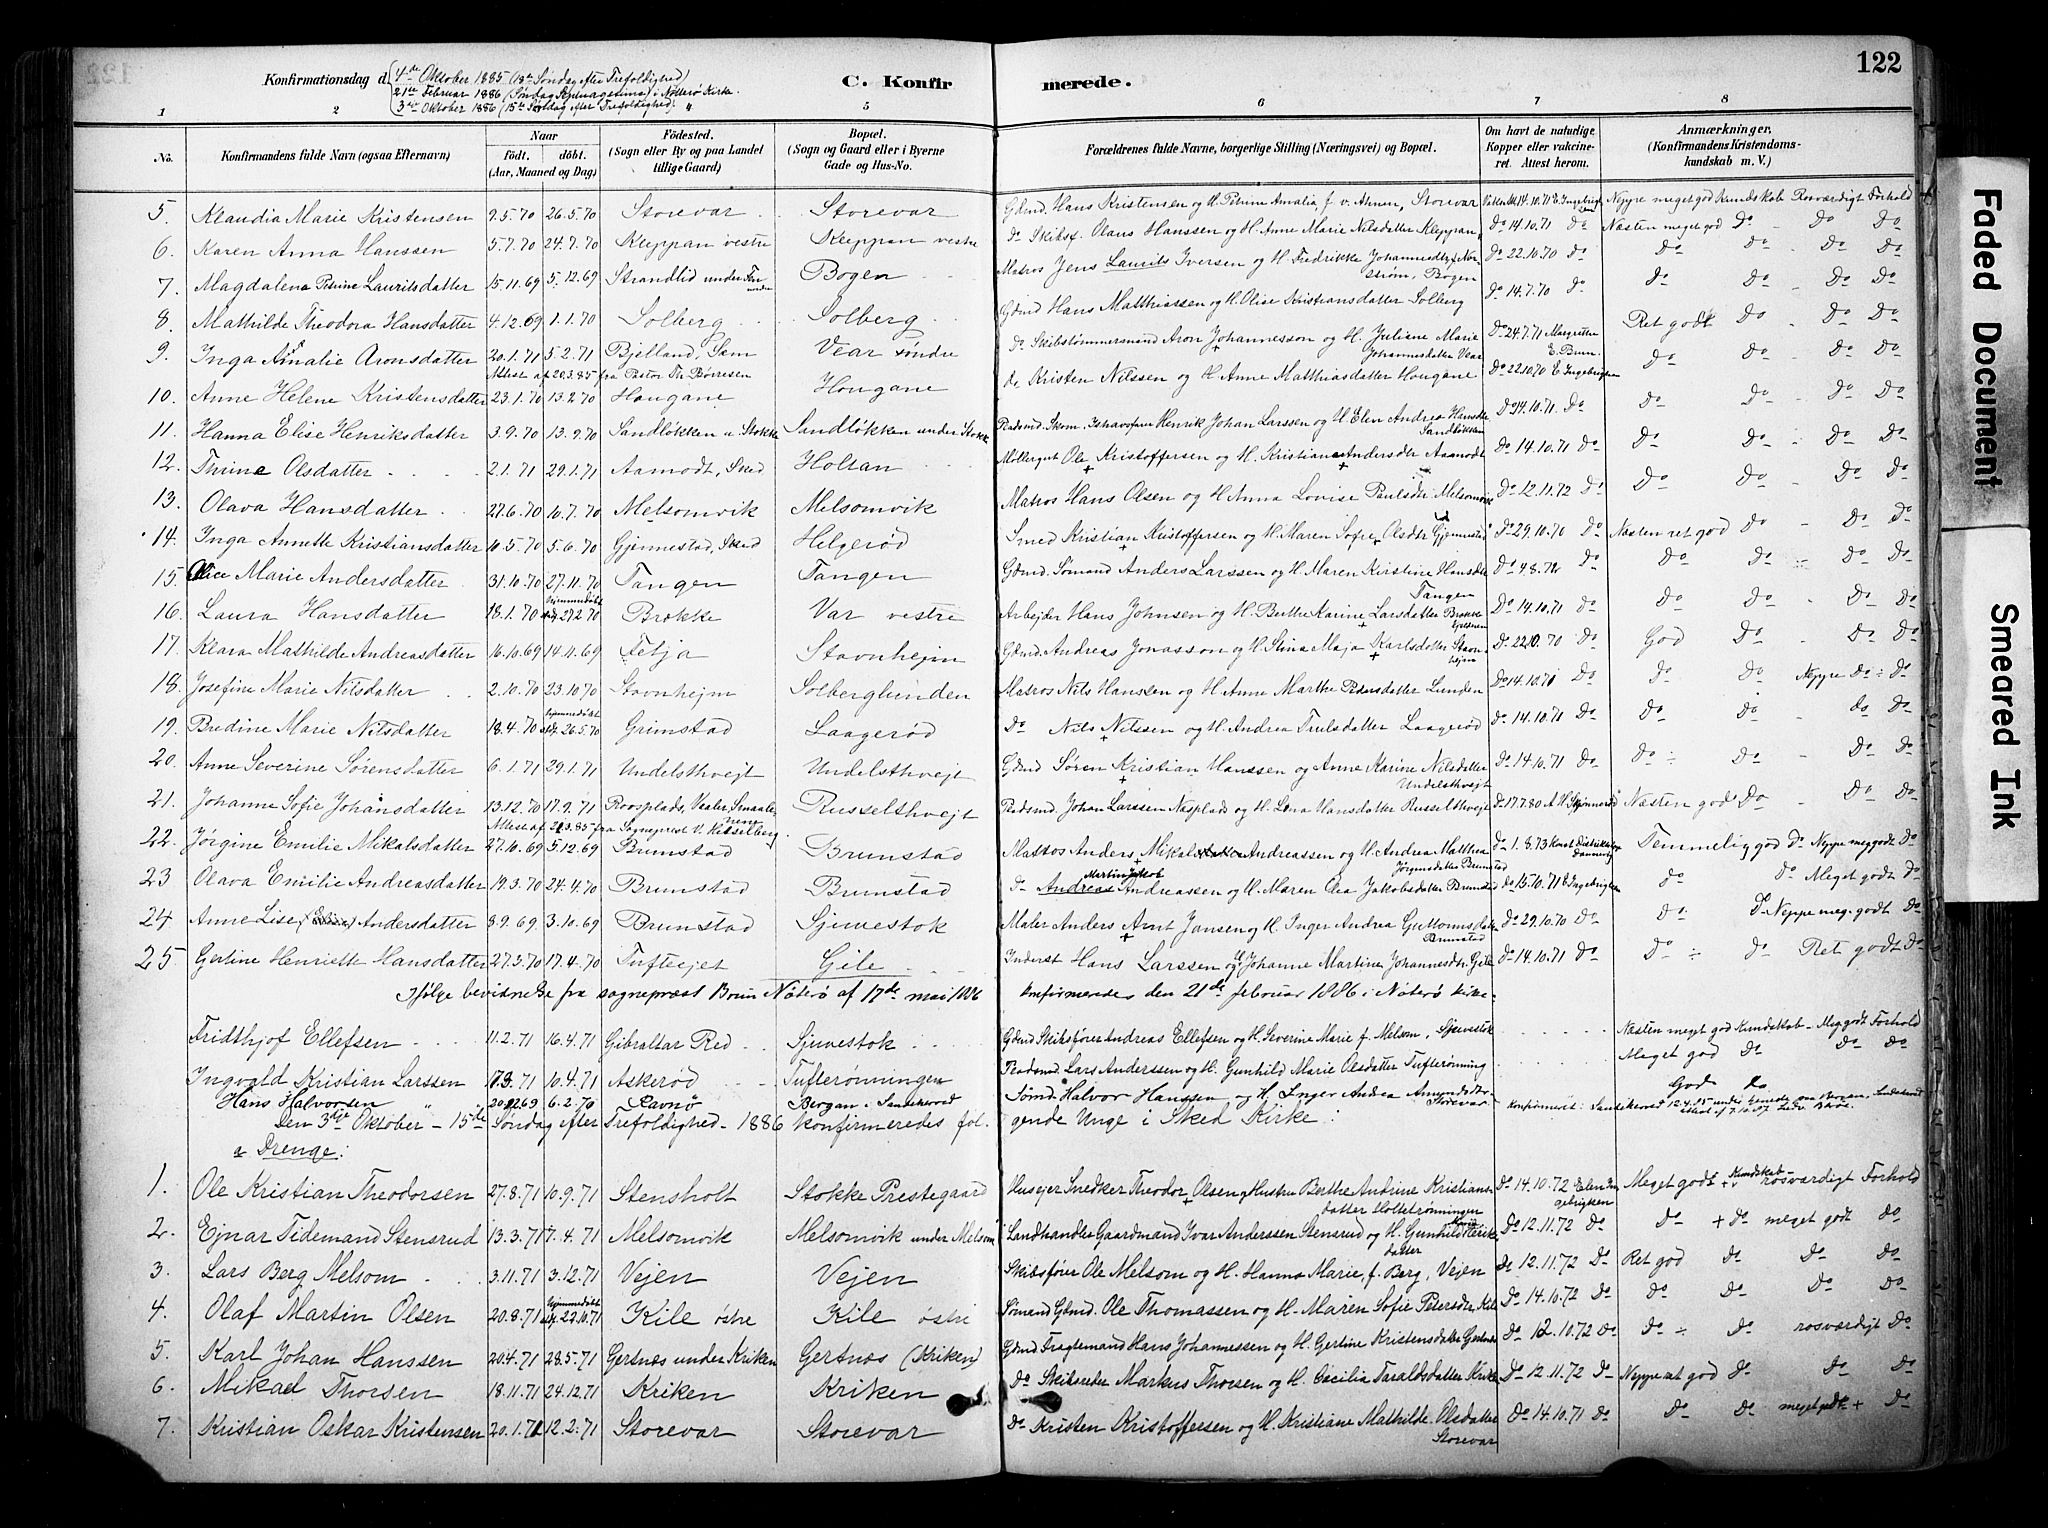 122
Konfirmationsdag d. 4de Oktober 1885 (18de Søndag efter Trefoldighed)
21de Februar 1886 (Søndag Septuagesima) i Nøtterø Kirke.
3die Oktober 1886 (15de Søndag efter Trefoldighed) "
C. Konfirmerede.
1 2 5 6 7 8
No. Konfirmandens fulde Navn (ogsaa Efternavn) Naar født. døbt. (Aar, Maaned og Dag) Fødested. (Sogn eller By og paa Landet tillige Gaard) Bopæl. (Sogn og Gaard eller i Byerne Gade og Hus-No. Forældrenes fulde Navne, borgerlige Stilling (Næringsvei) og Bopæl. Om havt de naturlige Kopper eller vaccineret. Attest herom. Anmærkninger, (Konfirmandens Kristendomskundskab m. V.)
5. Klaudia Marie Kristensen 9.5.70 26.5.70 Storevar Storevar Gdmd. Hans Kristensen og H. Petrine Amalia, f. v. Ahnen, Storevar 14.10.71 Neppe meget god Kundskab Rosværdigt Forhold
6. Karen Anna Hanssen 5.7.70 24.7.70 Kleppan vestre Kleppan vestre Do Skibsf. Olaus Hanssen og H. Anne Marie Nilsdatter Kleppan Do 14.10.71 Do Næsten meget god Do Do Do
7. Magdalena Petrine Lauritsdatter 15.11.69 5.12.69 Strandlid under Bogen Matros Jens Laurits Iversen og H. Fredrikke Johannesdtr f. Norstrøm, Bogen Do 22.10.70 Do Do Do Do Do
8. Mathilde Theodora Hansdatter 4.12.69 1.1.70 Solberg Solberg Gdmd Hans Matthiassen og H. Olise Kristiansdatter Solberg Do 14.7.70 Do Do Do Do Do
9. Inga Amalie Aronsdatter 20.1.71 5.2.71 Bjelland, Sem Vear søndre Do Skibstømmersmand Aron Johannesson og H. Juliane Marie Johannesdatter Vear Do 24.7.71 Margrethe E. Brun. Ret godt Do Do Do
Attest af 20.3.85 fra Pastor Th. Børresen
10. Anne Helene Kristensdatter 23.1.70 13.2.70 Hougane Hougane do Kristen Nilssen og H. Anne Matthiasdatter Hougane Do 22.10.70 E. Ingebrigtsen Do Do Do Do
11. Hanna Elise Henriksdatter 3.9.70 13.9.70 Sandløkken u. Stokke Sandløkken under Stokke Henrik Johan Larssen og H. Elen Andrea Hansdtr Sandløkken Do 14.10.71 Do Do Do Do Do
12. Thrine Olsdatter 2.1.71 29.1.71 Aamodt, Sked Holtan Møllergut Ole Kristoffersen og H. Kristiane Andersdtr Aamodt Do 14.10.71 Do Do Do Do Do
13. Olava Hansdatter 27.6.70 10.7.70 Melsomvik Melsomvik Matros Hans Olsen og H. Anna Lovise Paulsdtr Melsomvik Do 12.11.72 Do Do Do Do Do
14. Inga Annette Kristiansdatter 10.5.70 5.6.70 Gjennestad, Sked Helgerød Smed Kristian Kristoffersen og H. Maren Sofie Olsdtr Gjennestad Do 29.10.70 Do Næsten ret god Do Do Do
15. Olice Marie Andersdatter 31.10.70 27.11.70 Tangen Tangen Gdmd. Sømand Anders Larssen og H. Maren Kirstine Hansdtr Tangen Do 4.8.72 Do Do Do Do Do
16. Laura Hansdatter 18.1.70 Hjemmedøbt 27.2.70 Brække Var vestre Arbejder Hans Johnsen og H. Berthe Karine Larsdatter Brække Do 14.10.71 Do Do Do Do Do
17. Klara Mathilde Andreasdatter 16.10.69 14.11.69 Tetja Stavnhejm Gdmd. Andreas Jonasson og H. Stina Maja Karlsdatter Stavnhejm Do 22.10.70 Do God Do Do Do
18. Josefine Marie Nilsdatter 2.10.70 23.10.70 Stavnhejm Solberglunden Matros Nils Hanssen og H. Anne Marthe Pedersdatter Lunden Do 14.10.71 Do Do Do Neppe Do Do
19. Bredine Marie Nilsdatter 18.4.70 Hjemmedøbt 26.5.70 Grimstad Laagerød Do Nils Nilssen og H. Andrea Trulsdatter Laagerød Do 14.10.71 Do Do Do do Do
20. Anne Severine Sørensdatter 6.1.71 29.1.71 Undelsthvejt Undelsthvejt Gdmd Søren Kristian Hanssen og Anne Karine Nilsdatter Undelsthvejt Do 14.10.71 Do Do ÷ Do Do Do
21. Johanne Sofie Johansdatter 13.12.70 17.9.71 Roosplads, Vaaler, Smaalenene Russelthvejt Johan Larssen Næsplads og H. Lena Hansdatter Russelthvejt Do 17.7.80 Næsten god Do Do Do
Attest af 21.3.85 fra Sogneprest V. Hesselberg.
22. Jørgine Emilie Mikalsdatter 27.10.69 5.12.69 Brunstad Brunstad Matros Anders Mikal Andreassen og H. Andrea Matthea Jørgensdatter Brunstad Do 1.8.73 Temmelig god Do Neppe meg godt Do
23 Olava Emilie Andreasdatter 19.3.70 24.4.70 Brunstad Brunstad Do Andreas Martin Jakob Andreassen og H. Maren Elea Jakobsdatter Brunstad Do 15.10.71 E. Ingebrigtsen Do Do Meget godt Do
24 Anne Lise, (Elise) Andersdatter 8.9.69 3.10.69 Brunstad Sjuestok Maler Anders Arnt Jansen og H. Inger Andrea Guttormsdatter Brunstad Do 29.10.70 Do Do Do Neppe meg. godt Do
25 Gertine Henriette Hansdatter 27.3.70 17.4.70 Tufteejet Gile Inderst Hans Larssen og H. Johanne Martine Johannesdtr. Gile Do 14.10.71 Do Do ÷ Do Ret godt Do
Ifølge bevidnelse fra sogneprest Brun Nøterø af 17de mai 1886 konfirmeredes den 21de februar 1886 i Nøterø kirke.
Fridthjof Ellefsen 11.2.71 16.4.71 Gibraltar Red Sjuestok Gdmd Skibsfører Andreas Ellefsen og H. Severine Marie f. Melsom, Sjuestok Næsten meget god Kundskab Meg godt Forhold
Ingvald Kristian Larssen 17.3.71 10.4.71 Askerød Tufterønningen Pladsmd. Lars Anderssen og H. Gunhild Marie Olsdatter Tufterønning Meget god Do Do Do
Hans Halvorsen 20.12.69 6.2.70 Ravnø Bergan i Sandeherred Sømd. Halvor Hanssen og H. Inger Andrea Amundsdtr. Storevar God do
Den 3die Oktober - 15de Søndag efter Trefoldighed - 1886 konfirmeredes følgende Unge i Sked Kirke:
a Drenge:
1. Ole Kristian Theodorsen 27.8.71 10.9.71 Stensholt Stokke Prestegaard Husejer Snedker Theodor Olsen og Hustru Berthe Andrine Kristiansdatter Holterønningen Do 14.10.72 Elen Ingebrigtsen Meget godt Kundskab rosværdigt Forhold
2. Ejnar Tidemand Stensrud 13.3.71 7.4.71 Melsomvik Melsomvik under Melsom Landhandler Gaardmand Ivar Anderssen Stensrud og H. Gunhild Eriksdatter Do 12.11.72 Do Do + Do meget godt Do
3. Lars Berg Melsom 3.11.71 3.12.71 Vejen Vejen Skibsfører Ole Melsom og H. Hanna Marie, f. Berg, Vejen Do 12.11.72 Do Ret god Do Do Do
4. Olaf Martin Olsen 20.8.71 Hjemmedøbt 22.10.71 Kile østre Kile østre Sømand Gdmd. Ole Thomassen og H. Maren Sofie Petersdtr Kile Do 14.10.72 Do Do Do Do Do
5. Karl Johan Hanssen 20.4.71 28.5.71 Gertnæs under Kriken Gertnæs (Kriken) Gdmd Fragtemand Hans Johannessen og H. Gertine Kristensdatter Gertnæs Do 12.10.72 Do Do ÷ Do rosværdigt Do
6. Mikael Thorsen 18.11.71 24.12.71 Kriken Kriken Do Skibsreder Markus Thorsen og H. Cecilia Taraldsdatter Kriken Do 12.11.72 Do Neppe ret god Do Do Do
7. Kristian Oskar Kristensen 20.1.71 12.2.71 Storevar Storevar Do Kristen Kristoffersen og H. Kristiane Mathilde Olsdatter Storevar Do 14.10.71 Do Do Do meget godt + Do
Faded Document
Smeared Ink